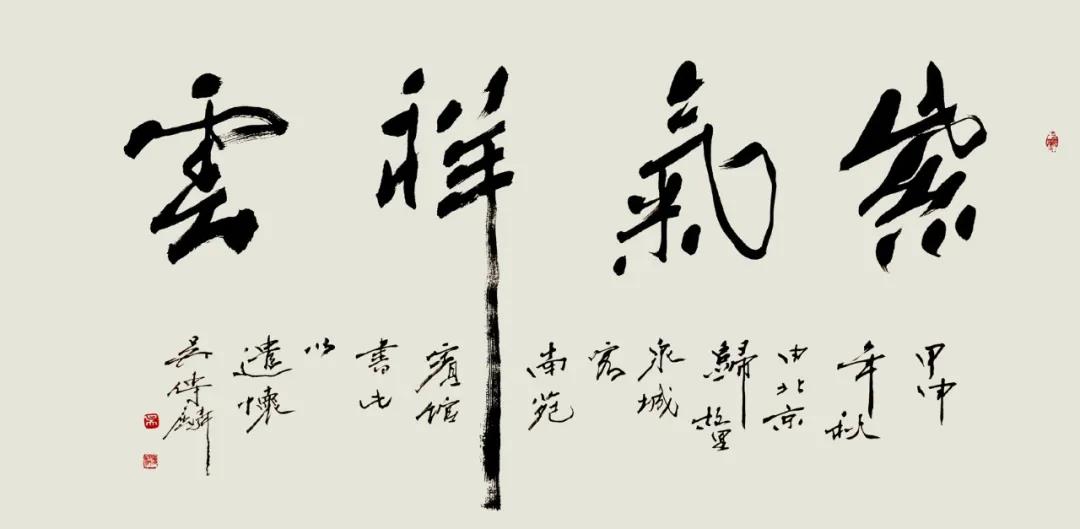 紫氣祥雲
甲申
年秋
由北京
歸
泉城
客
南苑
賓館
書此
以
遣懷
吳傳麟